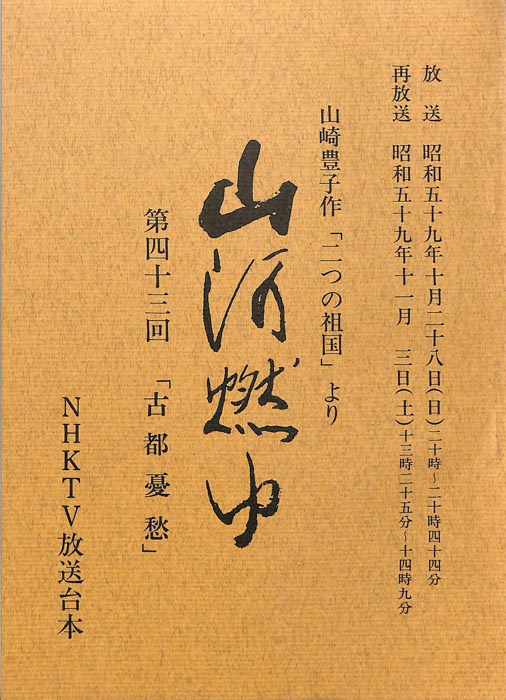 放送 昭和五十九年十月二十八日(日)二十時~二十時四十四分
再放送 昭和五十九年十一月 三日(土)十三時二十五分~十四時九分
山崎豊子作「二つの祖国」より
山河燃ゆ
第四十三回 「古都憂愁」
NHKTV放送台本